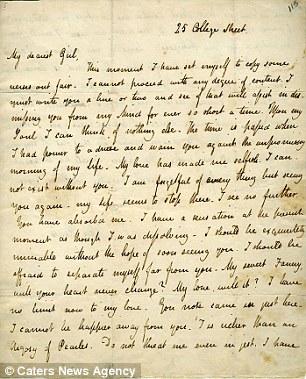 116
25 College Street
My dearest Girl,
This moment I have set myself to copy some
verses out fair. I cannot proceed with any degree of content. I
must write you a line or two and see if that will assist in dis-
missing you from my Mind for ever so short a time. Upon my
Soul I can think of nothing else. The time is passed when
I had power to advise and warn you against the unpromising
morning of my life. My love has made me selfish. I can
not exist without you. I am forgetful of every thing but seeing
you again. my life seems to stop there. I see no further.
You have absorb'd me. I have a sensation at the present
moment as though I was dissolving. I should be exquisitely
miserable without the hope of soon seeing you. I should be
affraid to separate myself far from you. My sweet Fanny
will your heart never change? My love, will it? I have
no limit now to my love. You note came in just here.
I cannot be happier away from you. 'Tis richer than an
Argosy of Pearles. Do not threat me even in jest. I have
© Caters News Agency